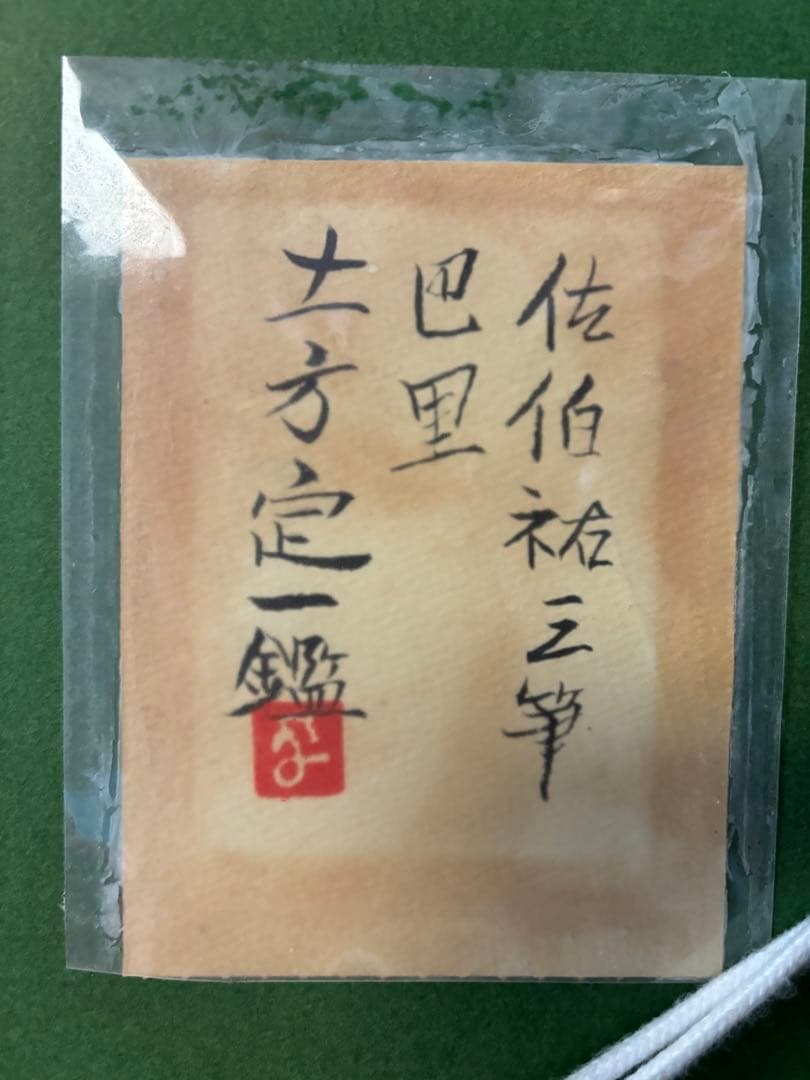 佐伯祐三筆
巴里
土方定一鑑